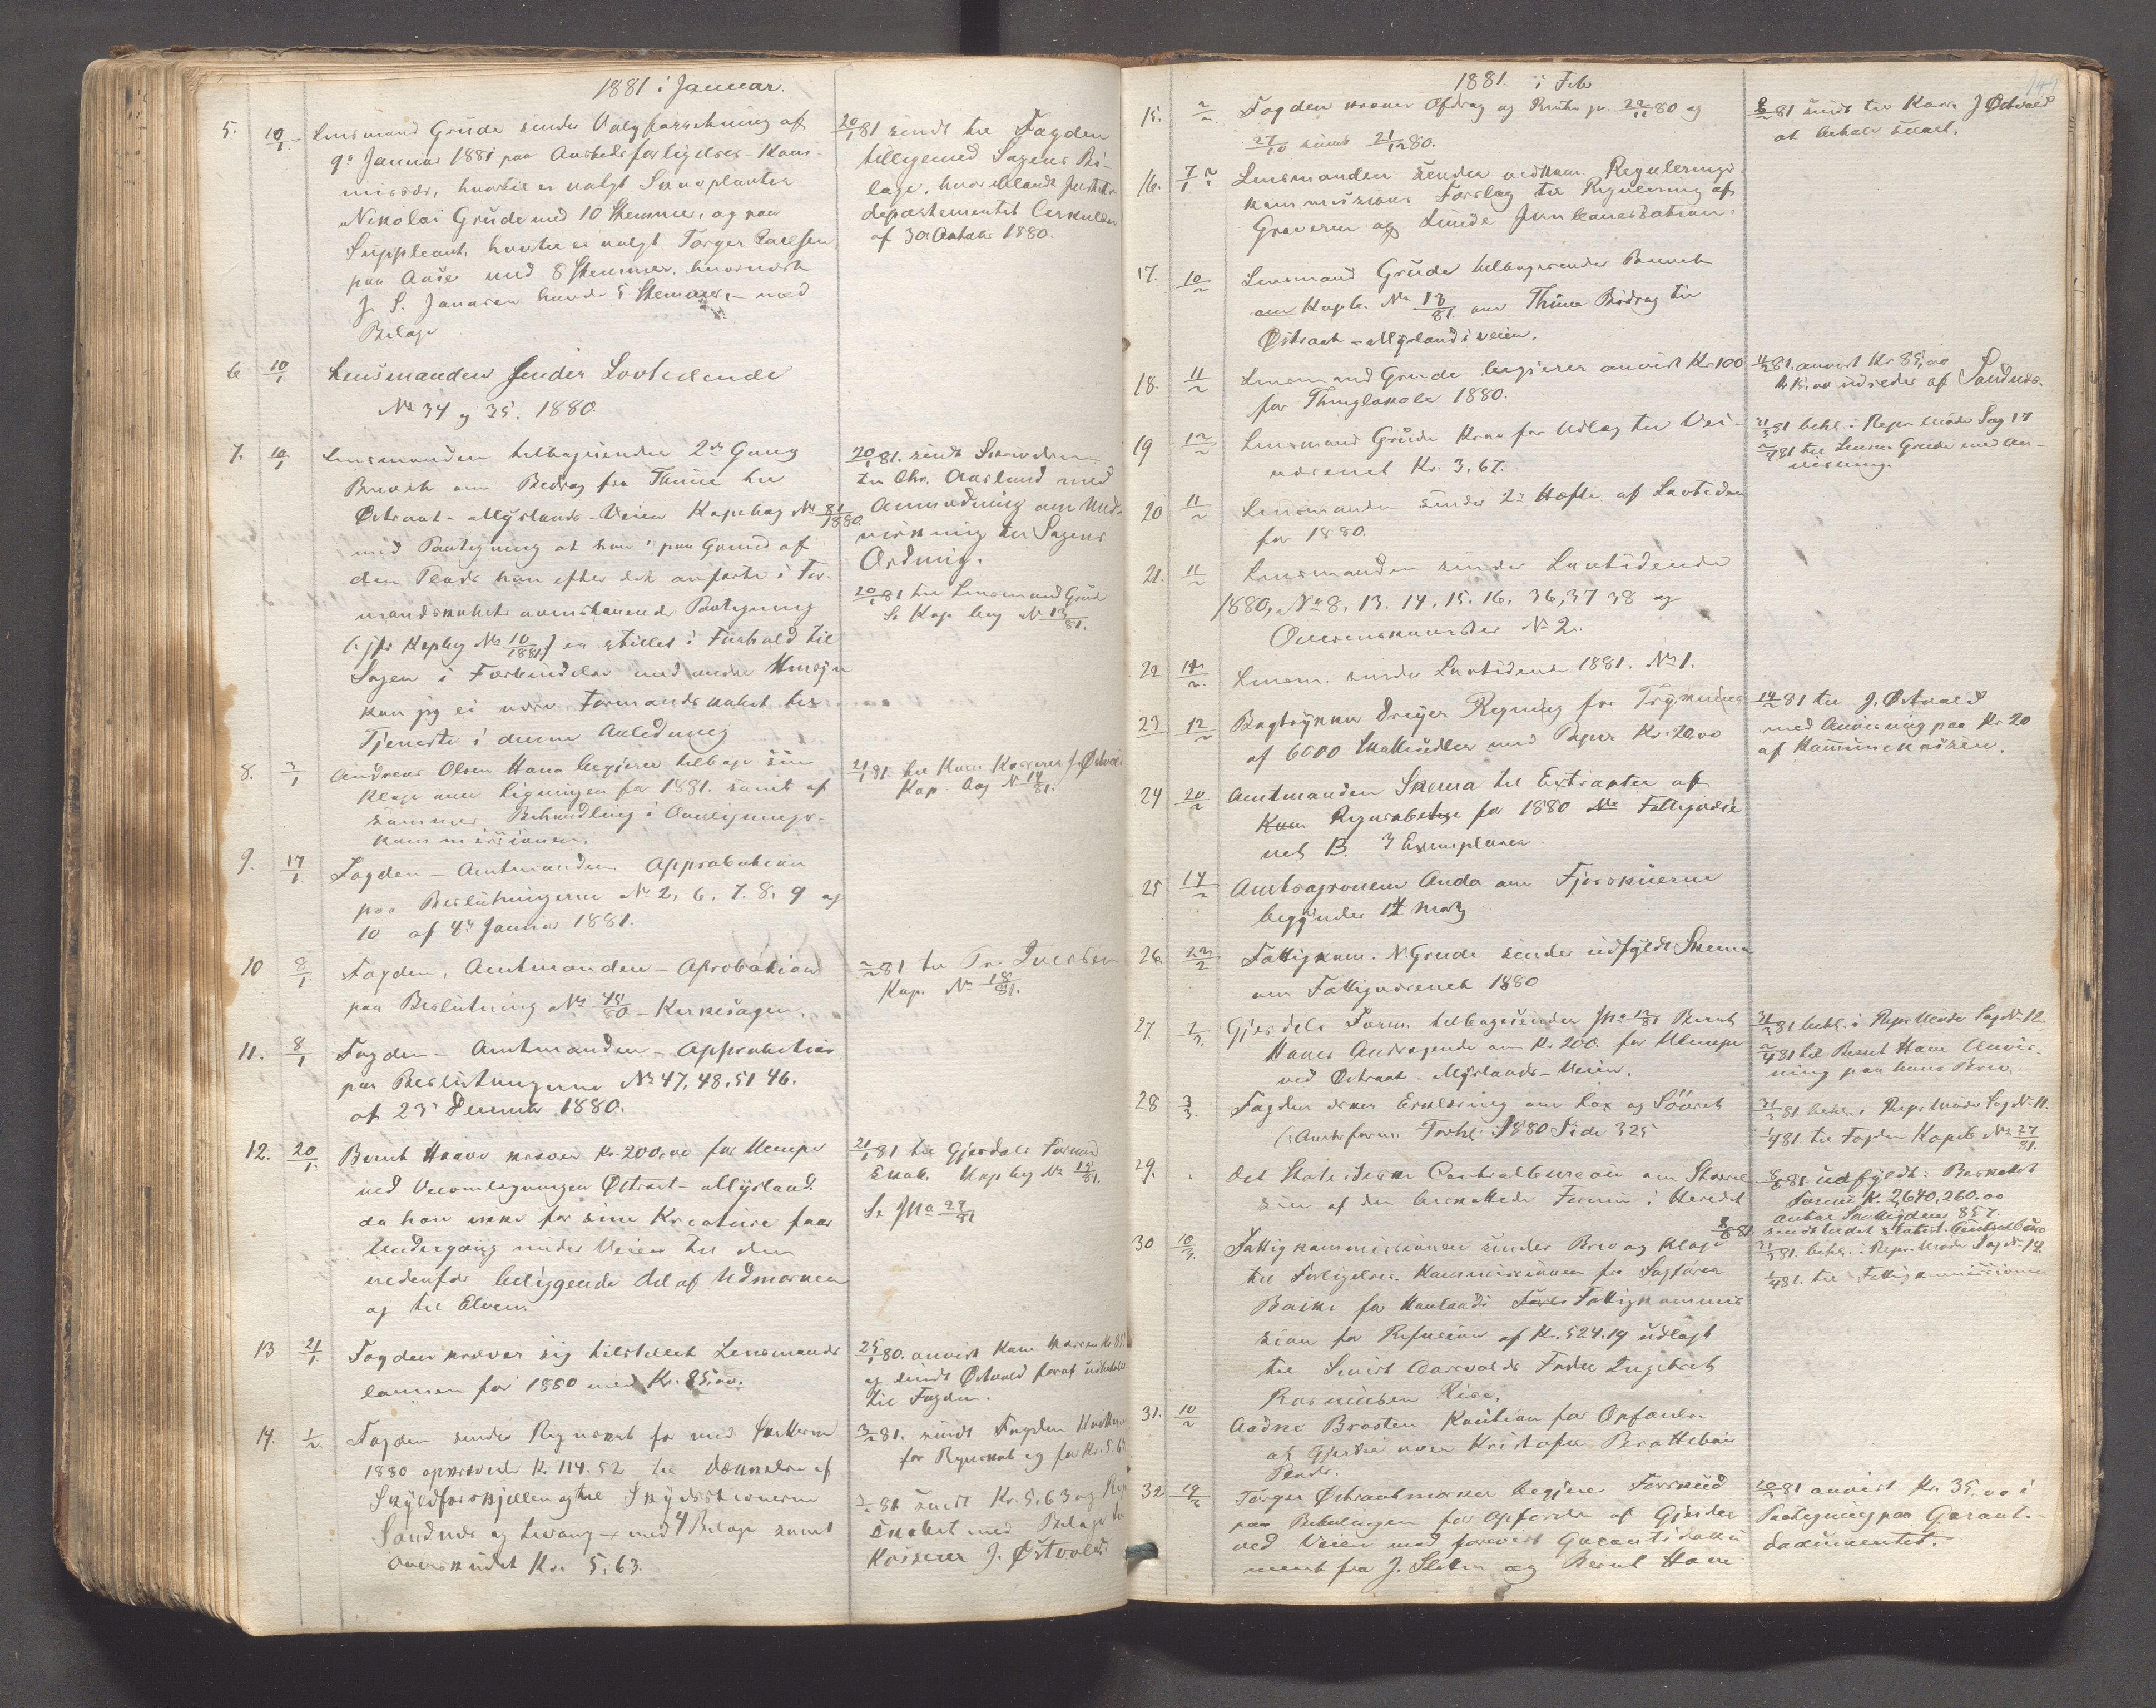 1881 i Januar.
5. 10/1 Lensmand Grude sender Valgforretning af
9de Januar 1881 paa Amtsforligelses-Kom-
missær, hvortil er valgt Skovplanter
Nikolai Grude med 10 Stemmer, og paa
Suppleant, hvortil er valgt Torger Carlsen
paa Aase med 8 Stemmer, hvornæst
J. S. Jonassen havde 5 Stemmer, – med
Bilage
20/1 81 sendt til Fogden
tilligemed Sagens Bi-
lage, hvoriblandt Justits-
departementets Cirkulære
af 30 Oktober 1880.
6 10/1 Lensmanden sender Lovtidende
No 34 og 35. 1880.
7. 10/1 Lensmanden tilbagesender 2den Gang
Brevet om Bidrag fra Thime til
Østraat-Myrlands-Veien Kopibog No 81/1880.
med Paategning at han "paa Grund af
den Plads han efter det anførte i For-
mandskabets ovenstaaende Paategning
(: jfr Kopibog No 10/1881) er stillet i Forhold til
Sagen i Forbindelse med andre Hensyn
kan jeg ei være Formandskabet til
Tjeneste i denne Anledning
20/1 81. sendt Skrivelsen
til Chr. Aarsland med
Anmodning om Med-
virkning til Sagens
Ordning.
20/1 81 til Lensmand Grude
Se Kop bog No 13/81.
8. 3/1 Andreas Olsen Hana begjærer tilbage sin
Klage over Ligningen for 1881. samt af
sammes Behandling i Overlignings-
kommissionen.
21/1 81. til Kom Kasserer J. Østvold
Kop. bog No 14/81.
9. 17/1. Fogden – Amtmanden Approbation
paa Beslutningerne No 2, 6, 7. 8, 9 og
10 af 4de Januar 1881.
10 8/1 Fogden, Amtmanden – Aprobation
paa Beslutning No 45/80 – Kirkesagen.
2/2 81 til Tr. Iversen
Kop. No 18/81.
11. 8/1 Fogden – Amtmanden – Approbation
paa Beslutningerne No 47, 48, 51 46.
af 23de December 1880.
12. 20/1. Bernt Haave kræver Kr. 200,00 for Ulemper
ved Veiomlægningen Østraat–Myrland.
da han ikke for sine Kreature faar
Undergang under Veien til den
nedenfor beliggende del af Udmarken
og til Elven.
21/1 81 til Gjesdals Formand
skab. Kop bog No 15/81.
Se No 27/81
13 21/1. Fogden kræver sig tilstillet Lensmands
lønnen for 1880 med Kr. 85,00.
25/1 80. anvist Kom Kassen Kr 85
og sendt Østvold forat udbetale
til Fogden.
14. 1/2. Fogden sender Regnskab for med Skatterne
1880 opkrævede Kr 114.52 til Dækkelse af
Skyldforskjellen og til Skydsstationerne
Sandnæs og – med 4 Bilage samt
Overskudet Kr. 5,63.
3/2 81. sendt Fogden Kvittering
for Regnskab og for Kr. 5.63
2/2 81 sendt Kr. 5,63 og Regn
skabet med Bilage til
Kasserer J. Østvold
1881 i Feb 149
15. 2/2 Fogden kræver Afdrag og Renter pr. 22/11 80 og
27/10 samt 21/12 80.
8/2 81 sendt til Kass. J Østvold
at betale snart.
16. 7/1 2 Lensmanden sender vedkom. Regulerings
kommissions Forslag til Regulering af
Graverne og Lunde Jernbanestation.
17. 10/2 Lensmand Grude tilbagesender Brevet
om Kopb. No 13/81. om Thime Bidrag til
Østraat–Myrlands veien.
18. 11/2 Lensmand Grude begjærer anvist Kr 100
for Thinglokale 1880.
11/2 81. anvist Kr 85,00
Kr. 15,00 udredes af Sandnæs.
19 12/2 Lensmand Grude Krav for Udlæg til Vei-
væsenet Kr. 3,67.
31/3 81 behl. i Repr Møde Sag 17
2/4 81 til Lensm Grude med An-
visning.
20 11/2 Lensmanden sender 2det Hæfte af Lovtiden
for 1880.
21. 11/2 Lensmanden sender Lovtidende
1880, No 8, 13. 14, 15. 16, 36, 37 38 og
Overenskomster No 2.
22 12/2. Lensm. sender Lovtidende 1881. No 1.
23 12/2 Bogtrykker Dreyer Regning for Trykning
af 6000 Skattesedler med Papir Kr. 20,00
14/2 81 til J. Østvold
med Anvisning paa Kr 20
af Kommunekassen.
24 20/2 Amtmanden Skema til Extrakter af
Kom Regnskaberne for 1880 No Fattigvæse
net B. 3 Exemplarer.
25 14/2 Amtsagronom Anda om Fjøsskuerne
begynder 14 Marz
26. 22/2 Fattigkom. N. Grude sender udfyldt Skema
om Fattigvæsenet 1880
27. 2/3. Gjesdals Form. tilbagesender No 12/81 Bernt
Haves Andragende om Kr 200. for Ulemper
ved Østraat–Myrlands–Veien.
31/3 81 behl. i Repr Møde Sag No 12.
2/4 81 til Bernt Have Anvis-
ning paa hans Brev.
28 3/3. Fogden æsker Erklæring om Lax og Søöret
(: Amts form. Forhl. 1880 Side 325
31/3 81. behl. i Repr Møde Sag No 11.
1/4 81. til Fogden Kopib No 27/81.
29. " Det Statistiske Centralbureau om Størrel
sen af den beskattede Formue i Herredet
8/3 81. udfyldt: Beskattet
Formue Kr. 2,640,260,00
Antal Skatteydere 857.
8/3 81. sendt til det statist. Centralbureau
30 10/3. Fattigkommissionen sender Brev og Klage
til Forligelses-Kommissionen fra Sagfører
Basike for Haalands Fattigkommis
sion for Refusion af Kr. 524.19 udlagt
til Smert Aarsvolds Fader Ingebret
Rasmussen Riska.
31/3 81. behl. i Repr. Møde Sag No 14
1/4 81. til Fattigkommissionen
31. 10/2 Aadne Brasten Kaution for Opførelse
af Gjerder over Kristofer Brattebøes
Plads.
32 19/2 Torger Østraatmarken begjærer Forskud
paa Betalingen for Opførelse af Gjerder
ved Veien med forevist Garantidoku
ment fra J. Sletten og Bernt Have
20/3 81 anvist Kr. 35,00 i
Paategning paa Garanti-
dokumentet.